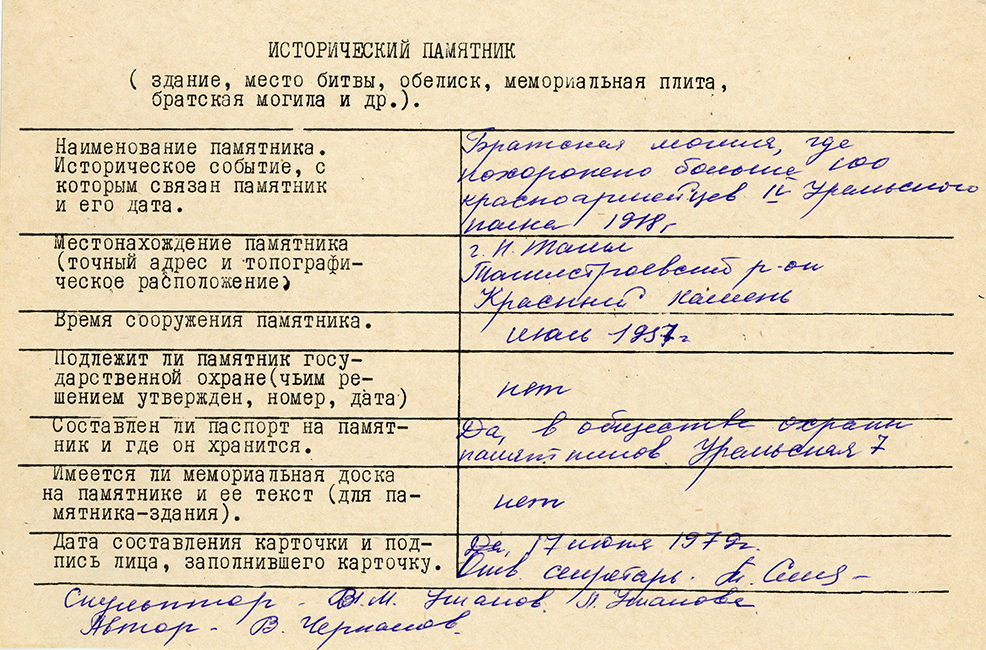 ИСТОРИЧЕСКИЙ ПАМЯТНИК
( здание, место битвы, обелиск, мемориальная плита,
братская могила и др.).
Наименование памятника.
Историческое событие, с
которым связан памятник
и его дата.
Братская могила, где
похоронено больше 100
красноармейцев IV Уральского
полка 1918г
Местонахождение памятника
(точный адрес и топографи-
ческое расположение)
г. Н. Тагил
Тагилстроевский р-он
Красный Камень
Время сооружения памятника.
июль 1957г
Подлежит ли памятник госу-
дарственной охране(чьим ре-
шением утвержден, номер, дата)
нет
Составлен ли паспорт на памят-
ник и где он хранится.
Да, в обществе охраны
памятников Уральская 7
Имеется ли мемориальная доска
на памятнике и ее текст (для па-
мятника-здания).
нет
Дата составления карточки и под-
пись лица, заполнившего карточку.
Да, 17 июня 1972г.
Отв. секретарь.
Скульптор - В.М. Ушаков. А. Ушакова
Автор - В.